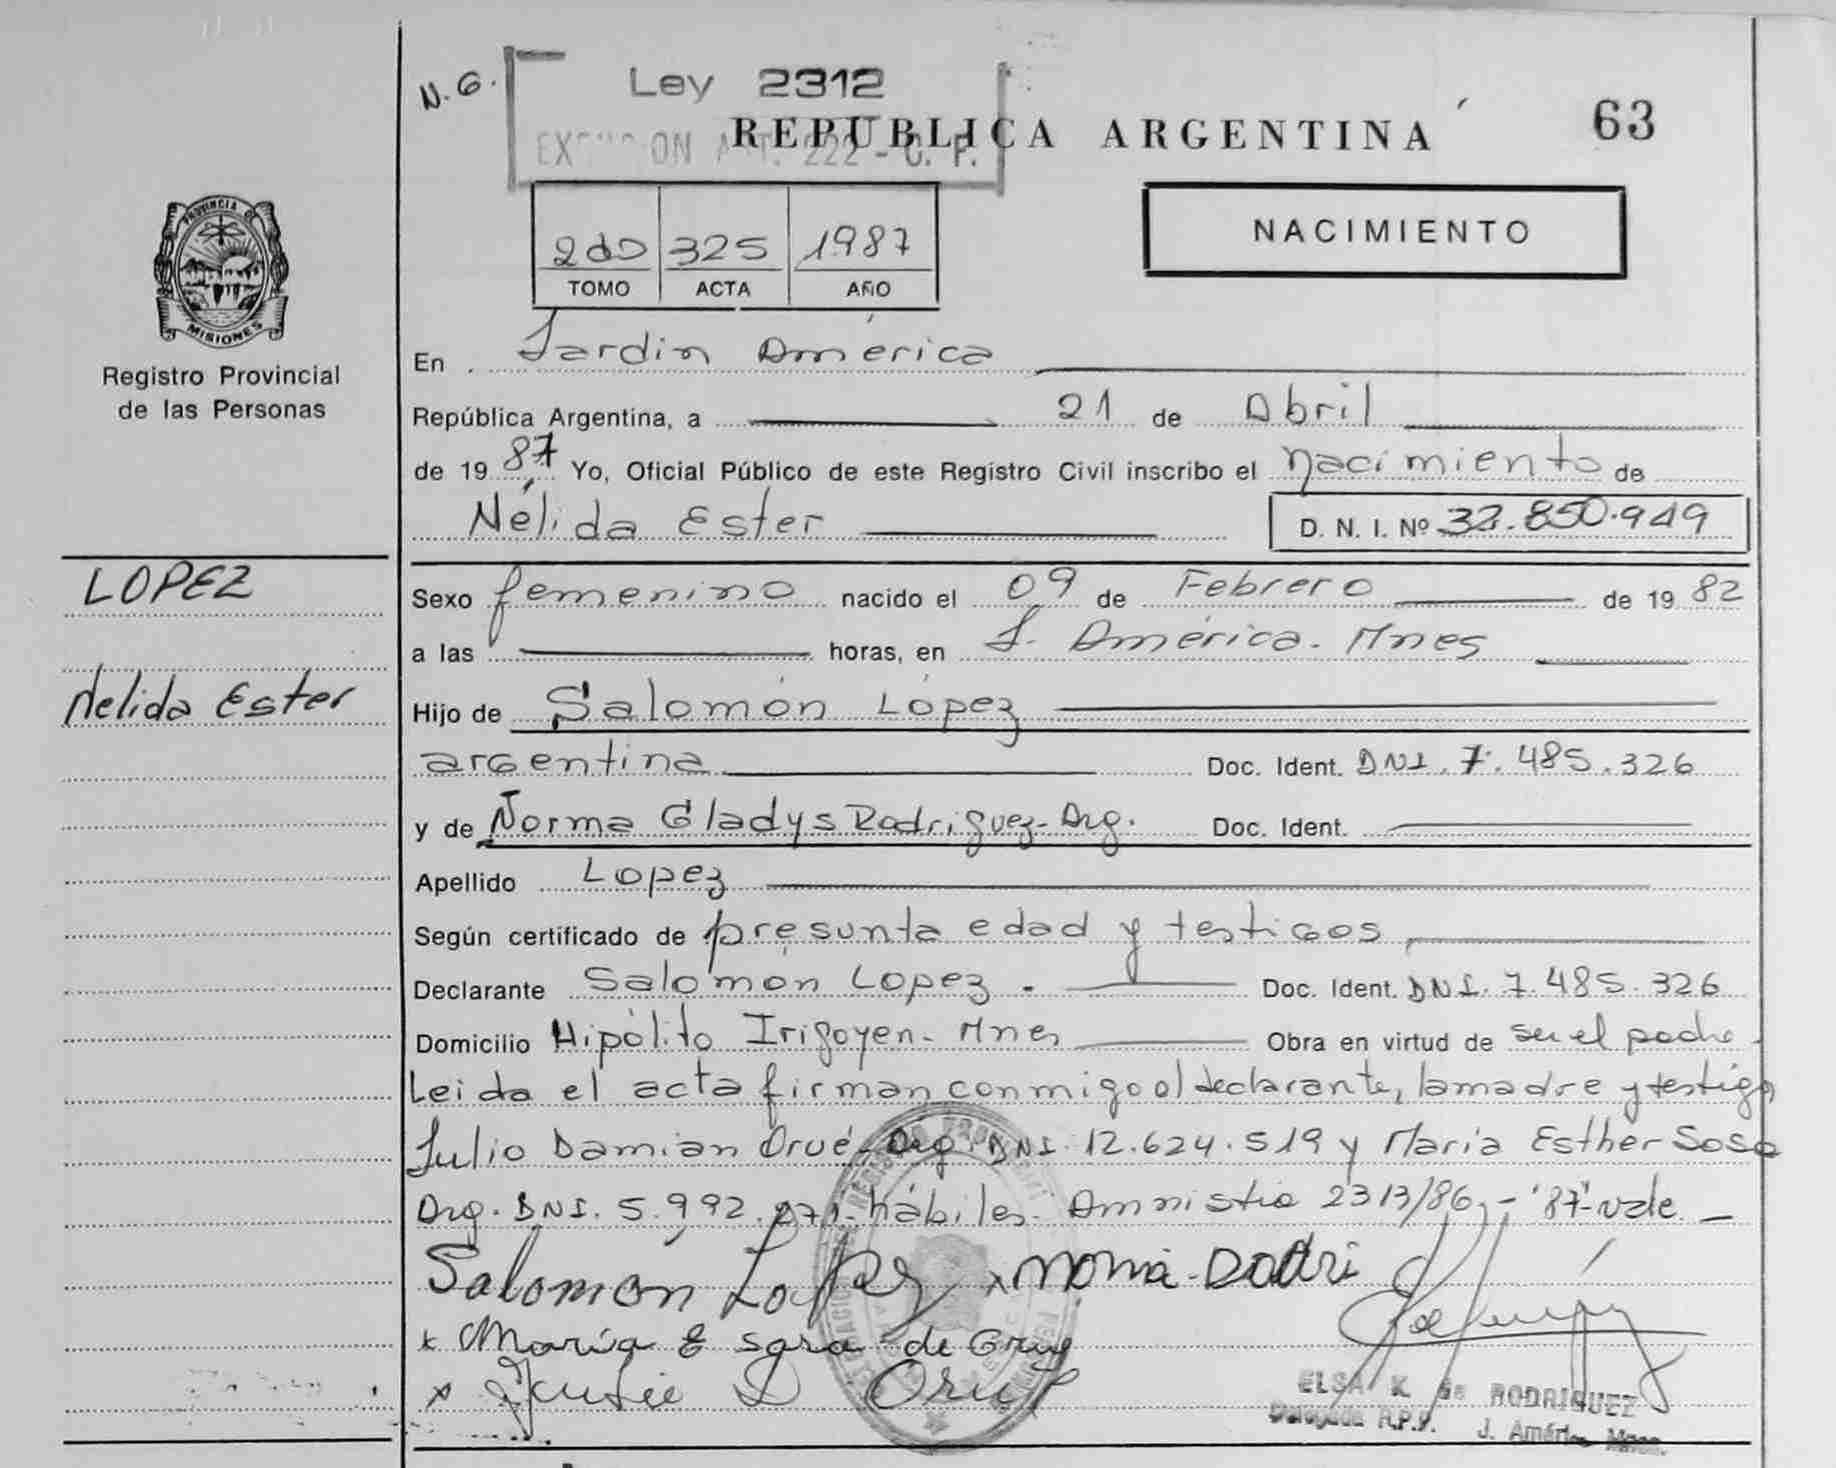 N.G.
Ley 2312
REPUBLICA ARGENTINA
63
NACIMIENTO
2do 325 1987
TOMO ACTA AÑO
PROVINCIA DE
MISIONES
Registro Provincial
de las Personas
En Jardín América
República Argentina, a 21 de Abril
de 1987 Yo, Oficial Público de este Registro Civil inscribo el nacimiento de
Nélida Ester D. N. I. Nº 32.850.949
LOPEZ
Nelida Ester
Sexo femenino nacido el 09 de Febrero de 1982
a las horas, en J. América - Mnes
Hijo de Salomón López
argentina Doc. Ident. DNI. 7.485.326
y de Norma Gladys Rodriguez - Arg. Doc. Ident.
Apellido Lopez
Según certificado de presunta edad y testigos
Declarante Salomón Lopez. Doc. Ident. DNI. 7.485.326
Domicilio Hipólito Irigoyen - Mnes Obra en virtud de ser el padre.
Leida el acta firman conmigo el declarante, la madre y testigos
Julio Damian Orué - Arg. DNI. 12.624.519 y Maria Esther Sosa
Arg. DNI. 5.992. hábiles - Amnistia 2313/86 - "87" - vale
Salomón Lopez x
x Maria E de
x D Orué
ELSA K. de RODRIGUEZ
Delegada R.P.P.
J. América Mnes.